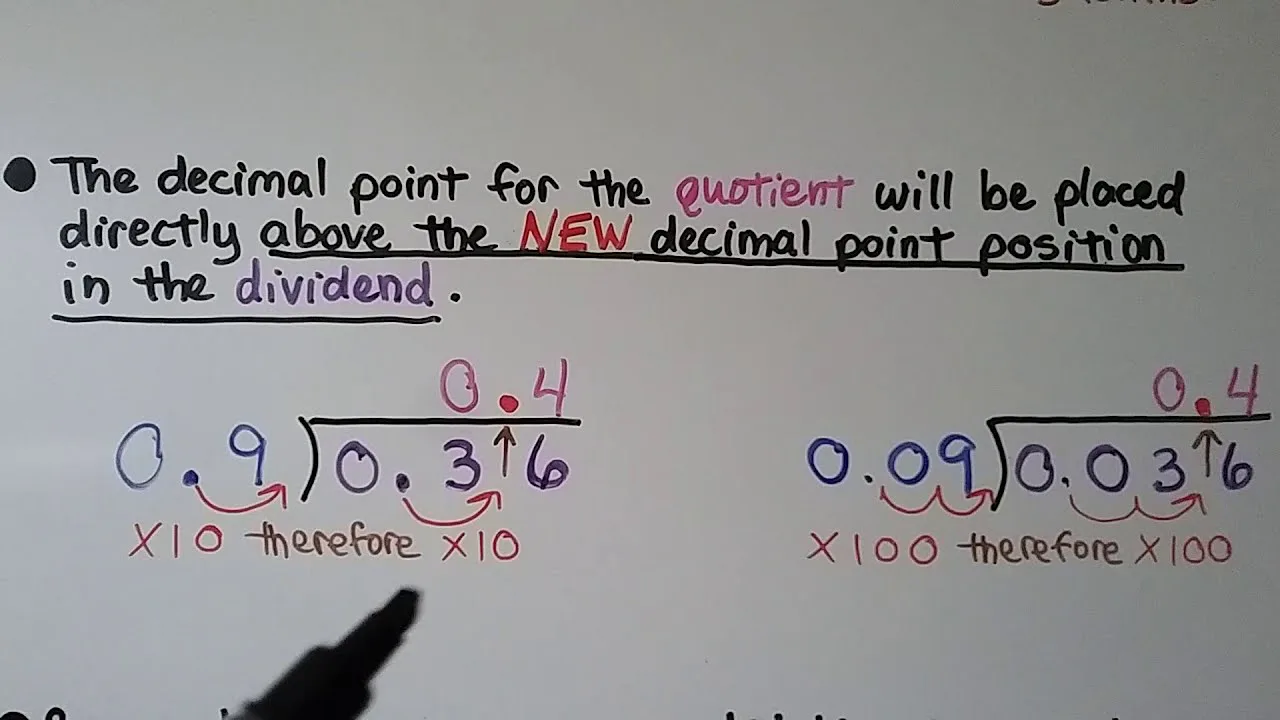 ● The decimal point for the quotient will be placed
directly above the NEW decimal point position
in the dividend.
0.4
0.9)0.3↑6
x10 therefore x10
0.4
0.09)0.03↑6
x100 therefore x100